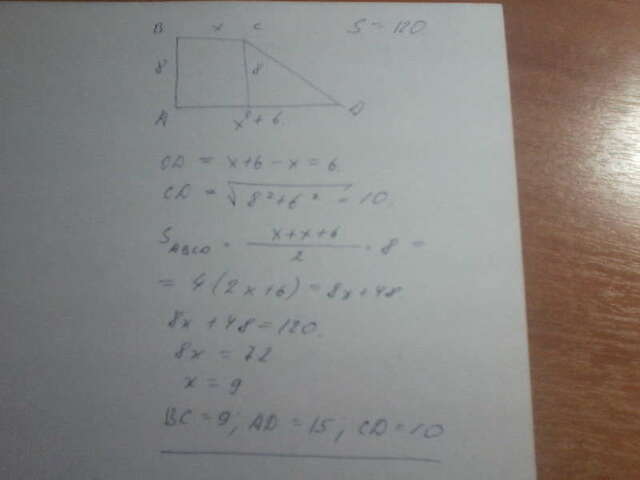 B x C S = 120
8 8
A x + 6 D
OD = x+6-x=6.
CD = √8²+6² = 10.
S ABCD = x+x+6 / 2 · 8 =
= 4(2x+6)=8x+48
8x +48=120.
8x = 72
x = 9
BC = 9; AD = 15; CD=10